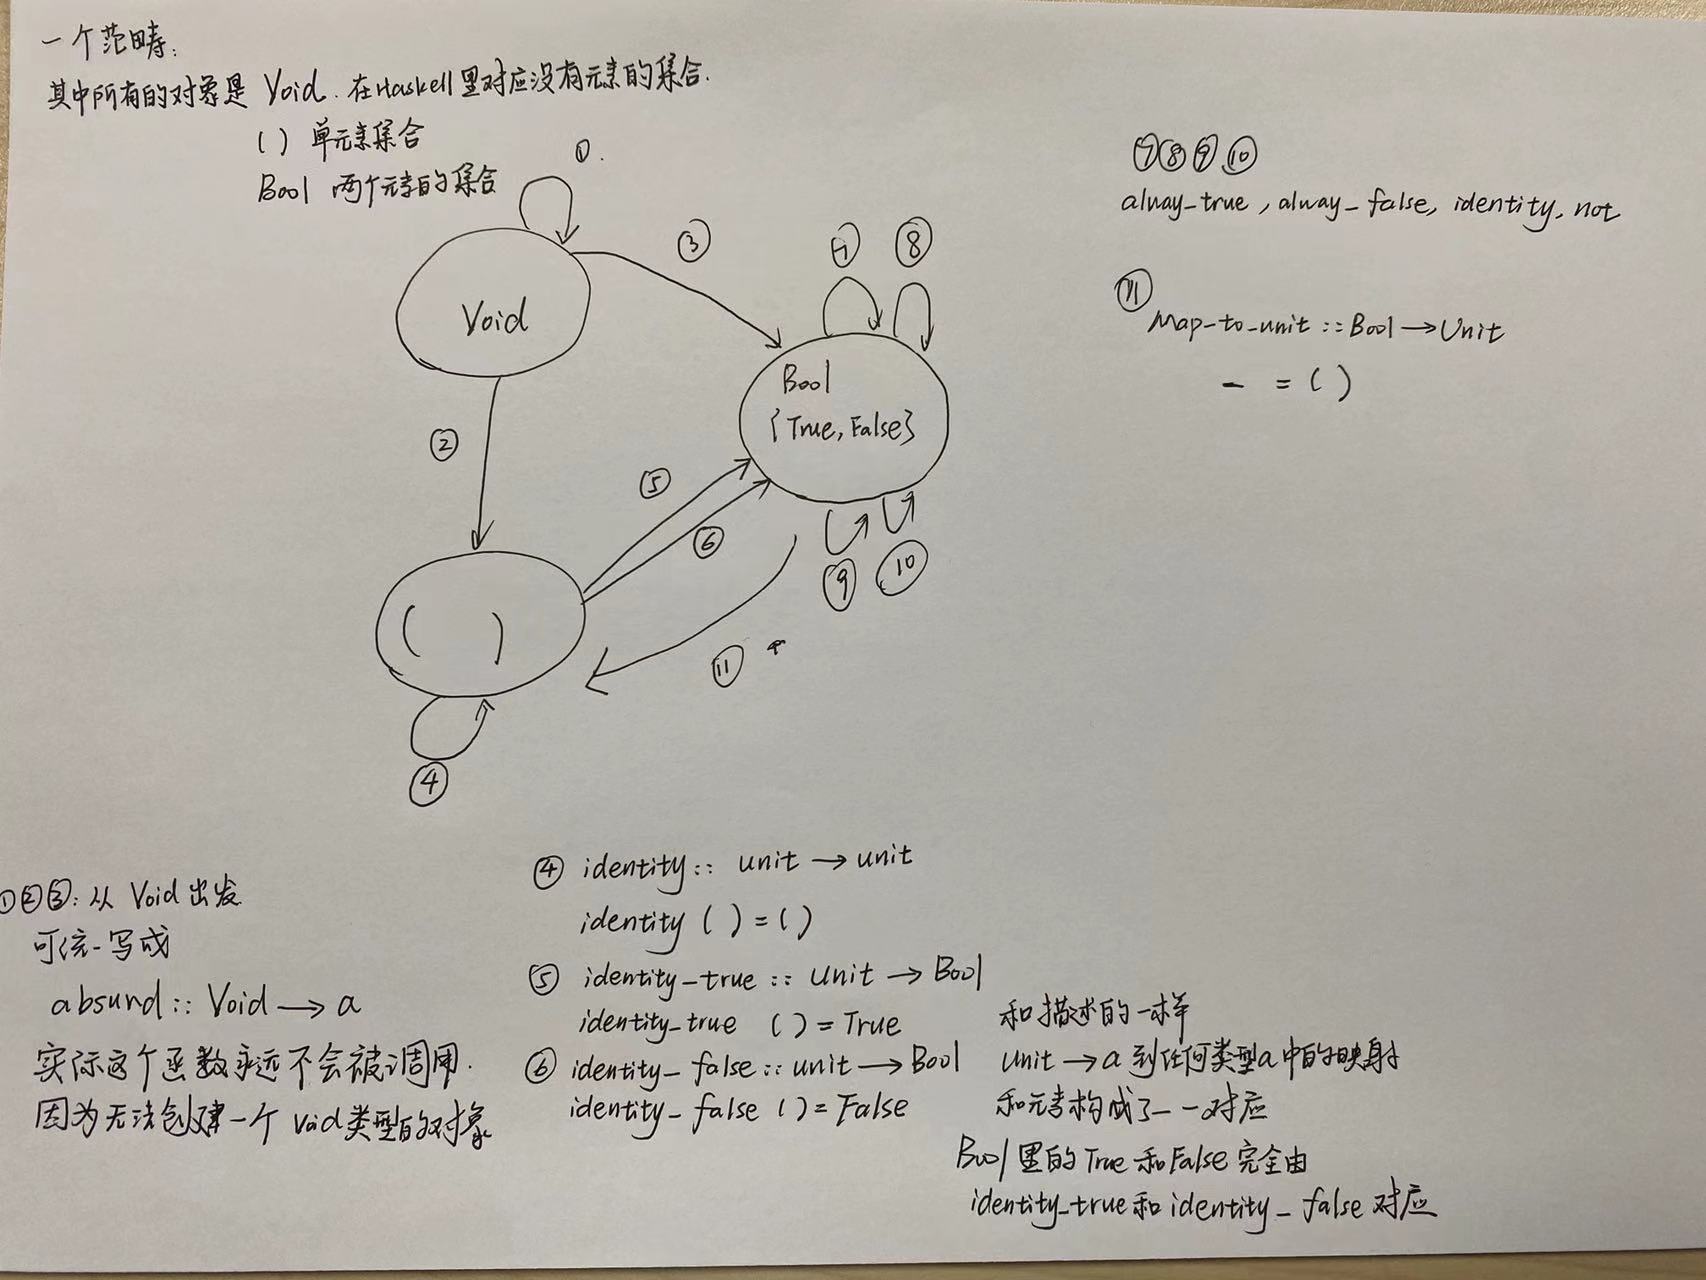 一个范畴:
其中所有的对象是 Void. 在Haskell里对应没有元素的集合.
( ) 单元素集合
Bool 两个元素的集合
①.
③
Void
②
⑦ ⑧
Bool
{True, False}
⑤
⑥
⑨ ⑩
⑪
( )
④
⑦⑧⑨⑩
alway_true, alway_false, identity, not
⑪
Map-to-unit :: Bool → Unit
_ = ( )
①②③: 从 Void 出发
可统一写成
absurd :: Void → a
实际这个函数永远不会被调用.
因为无法创建一个 void类型的对象
④ identity :: unit → unit
identity ( ) = ( )
⑤ identity_true :: Unit → Bool
identity_true ( ) = True
⑥ identity_false :: unit → Bool
identity_false ( ) = False
和描述的一样
unit → a 到任何类型a中的映射
和元素构成了一一对应
Bool里的True和False完全由
identity_true和identity_false对应